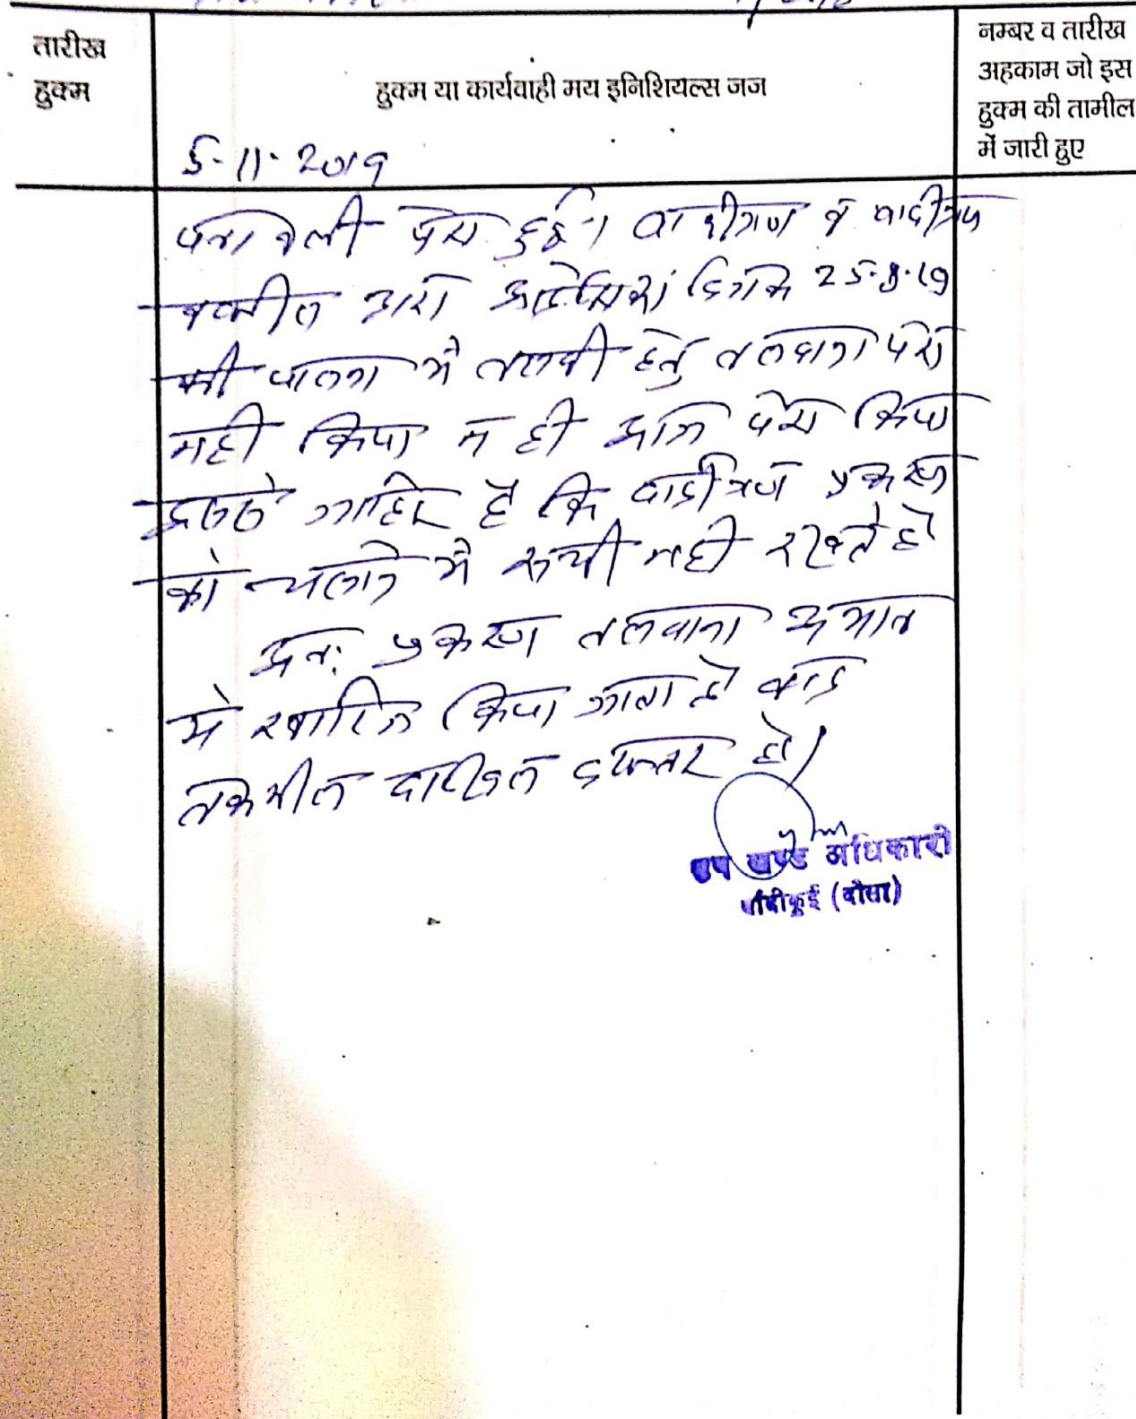 तारीख
हुक्म
हुक्म या कार्यवाही मय इनिशियल्स जज
नम्बर व तारीख
अहकाम जो इस
हुक्म की तामील
में जारी हुए
5-11-2019
पत्रावली पेश हुई। वादीगण व वादीगण
वकील द्वारा आदेशिका दिनांक 25-8-19
की पालना मे तलबी हेतु तलवाना पेश
नही किया न ही आज पेश किया
इससे जाहिर है कि वादीगण प्रकरण
को चलाने मे रूची नही रखते है
अतः प्रकरण तलवाना अभाव
मे खारिज किया जाता है बाद
तकमील दाखिल दफ्तर हो।
उप खण्ड अधिकारी
बांदीकुई (दौसा)